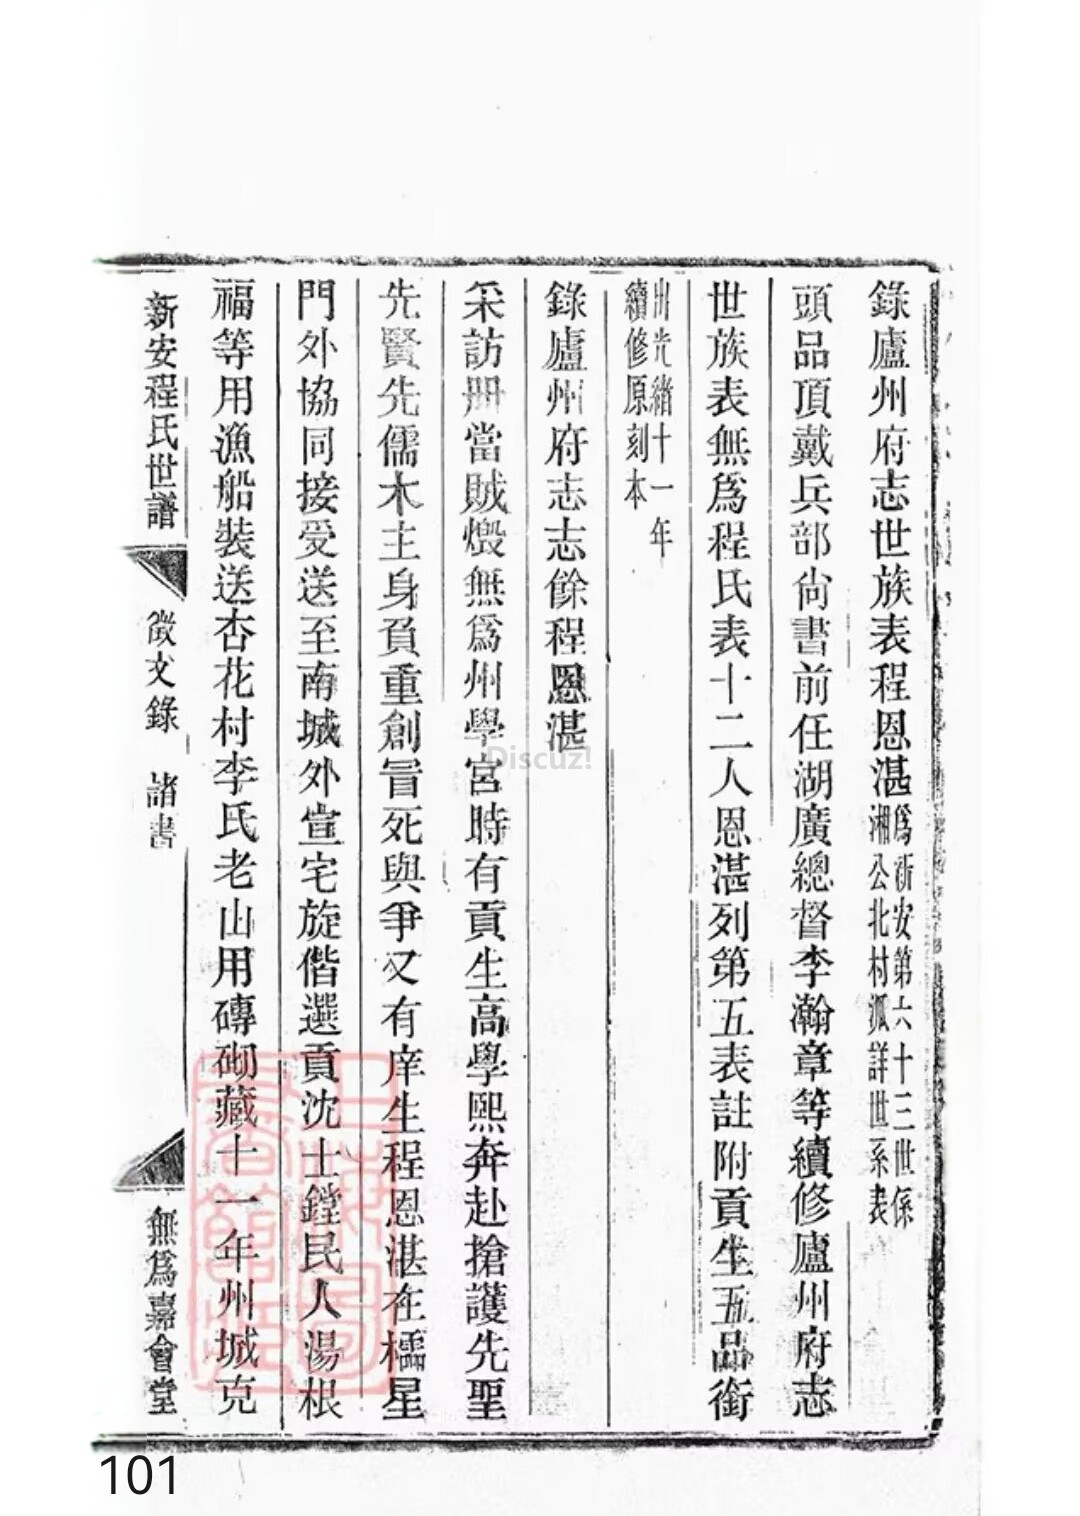 錄廬州府志世族表程恩湛為新安第六十三世係湘公北村派詳世系表
頭品頂戴兵部尙書前任湖廣總督李瀚章等續修廬州府志
世族表無爲程氏表十二人恩湛列第五表註附貢生五品銜
出光緒十一年續修原刻本
錄廬州府志志餘程恩湛
采訪册當賊燬無爲州學宮時有貢生高學熙奔赴搶護先聖
先賢先儒木主身負重創冒死與爭又有庠生程恩湛在櫺星
門外協同接受送至南城外宣宅旋偕選貢沈士鏜民人湯根
福等用漁船裝送杏花村李氏老山用磚砌藏十一年州城克
新安程氏世譜 徵文錄 諸書 無爲嘉會堂
Discuz!
101